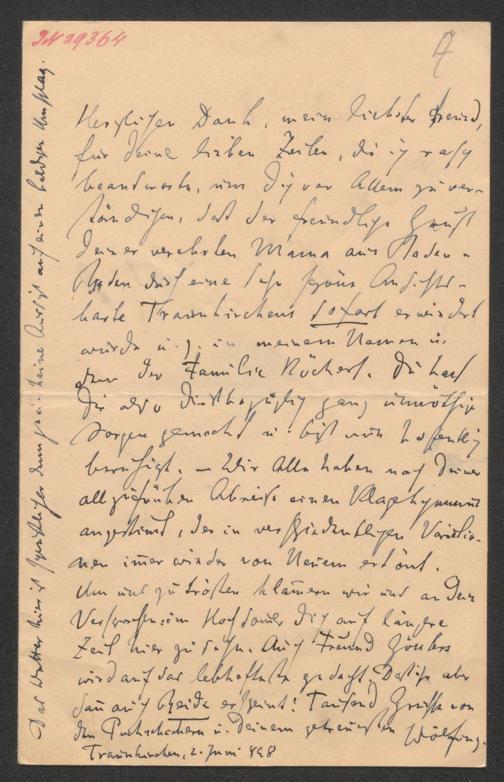 IN 29364
17
Herzlichen Dank, mein liebster Freund,
für Deine lieben Zeilen, die ich rasch
beantworte, um Dich vor Allem zu ver-
ständigen, daß der freundliche Gruß
Deiner verehrten Mama aus Baden-
Baden durch eine sehr schöne Ansichts-
karte Traunkirchens sofort erwidert
wurde u. z. in meinem Namen u.
der Familie Köchert. Du hast
Dir also diesbezüglich ganz unnöthige
Sorgen gemacht u. bist nun hoffentlich
beruhigt. – Wir Alle haben nach Deiner
allzufrühen Abreise einen Klagehymnus
angestimmt, der in verschiedentlichen Variatio-
nen immer wieder von Neuem ertönt.
Um uns zu trösten klammern wir uns an Dein
Versprechen im Hochsommer Dich auf längere
Zeit hier zu sehen. Auch Freund
wird auf das lebhafteste gedacht. Daß ihr aber
dann auch Beide erscheint! Tausend Grüße von
den Puchschachern u. Deinem getreuesten Wölfing.
Traunkirchen, 2. Juni 898
Das Wetter hier ist schrecklicher denn je: keine Aussicht auf einen baldigen Umschlag.